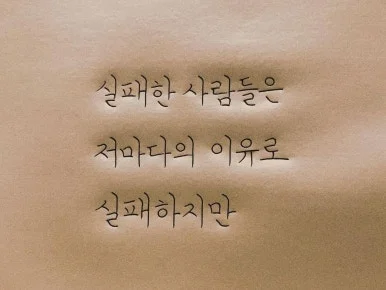 실패한 사람들은
저마다의 이유로
실패하지만